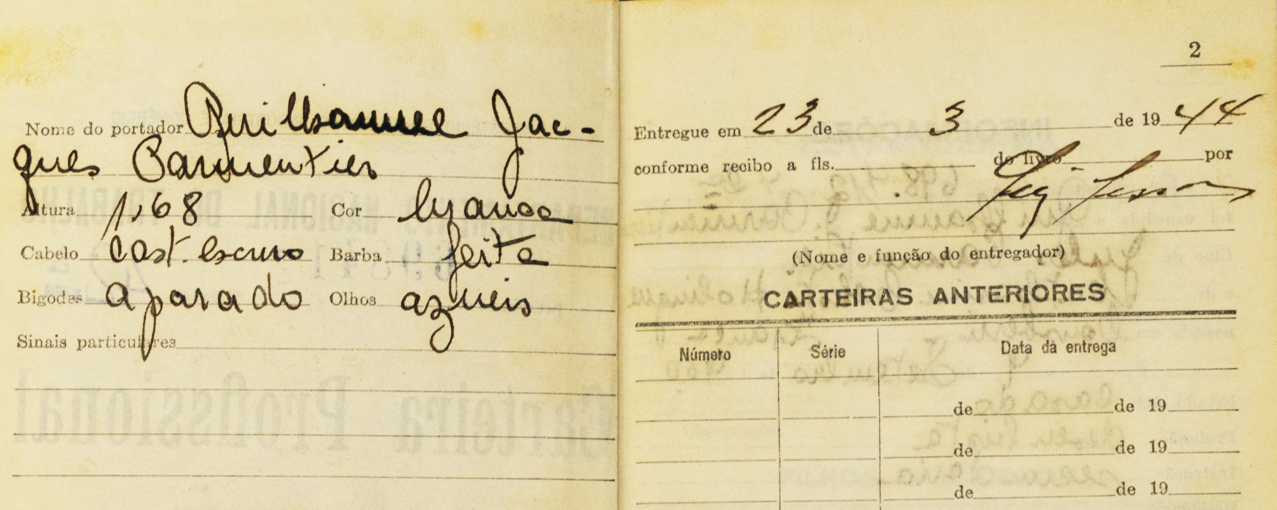 Nome do portador Guilhaume Jac-
ques Parmentier
Altura 1,68 Cor branca
Cabelo Cast. escuro Barba feita
Bigodes aparado Olhos azueis
Sinais particulares
2
Entregue em 23 de 3 de 1944
conforme recibo a fls. do livro por
(Nome e função do entregador)
CARTEIRAS ANTERIORES
Número Série Data da entrega
de de 19
de de 19
de de 19